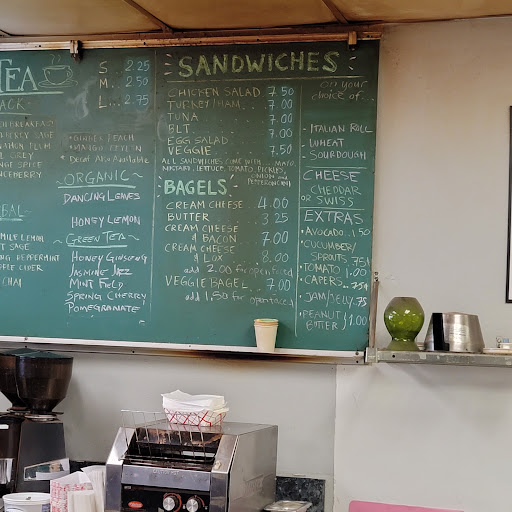 TEA
S... 2.25
M... 2.50
L... 2.75
GINGER PEACH
Decaf Also Available
ORGANIC
DANCING LEAVES
HONEY LEMON
GREEN TEA
HONEY GINSENG
JASMINE JAZZ
MINT FIELD
SPRING CHERRY
POMEGRANATE
CHAI
SANDWICHES
CHICKEN SALAD.. 7.50
TURKEY/HAM... 7.00
TUNA 7.00
BLT 7.00
EGG SALAD 7.00
VEGGIE 7.50
ALL SANDWICHES COME WITH... MAYO,
MUSTARD, LETTUCE, TOMATO, PICKLES,
ONION and
PEPPERONCINI
BAGELS
CREAM CHEESE... 4.00
BUTTER 3.25
CREAM CHEESE
& BACON 7.00
CREAM CHEESE
& LOX 8.00
add 2.00 for openfaced
VEGGIE BAGEL.. 7.00
add 1.50 for openfaced
on your
choice of..
- ITALIAN ROLL
- WHEAT
- SOURDOUGH
CHEESE
CHEDDAR
OR SWISS
EXTRAS
• AVOCADO.. 1.50
• CUCUMBER/
SPROUTS .75
• TOMATO 1.00
• CAPERS
• JAM/JELLY .75
• PEANUT
BUTTER } 1.00
HATCO